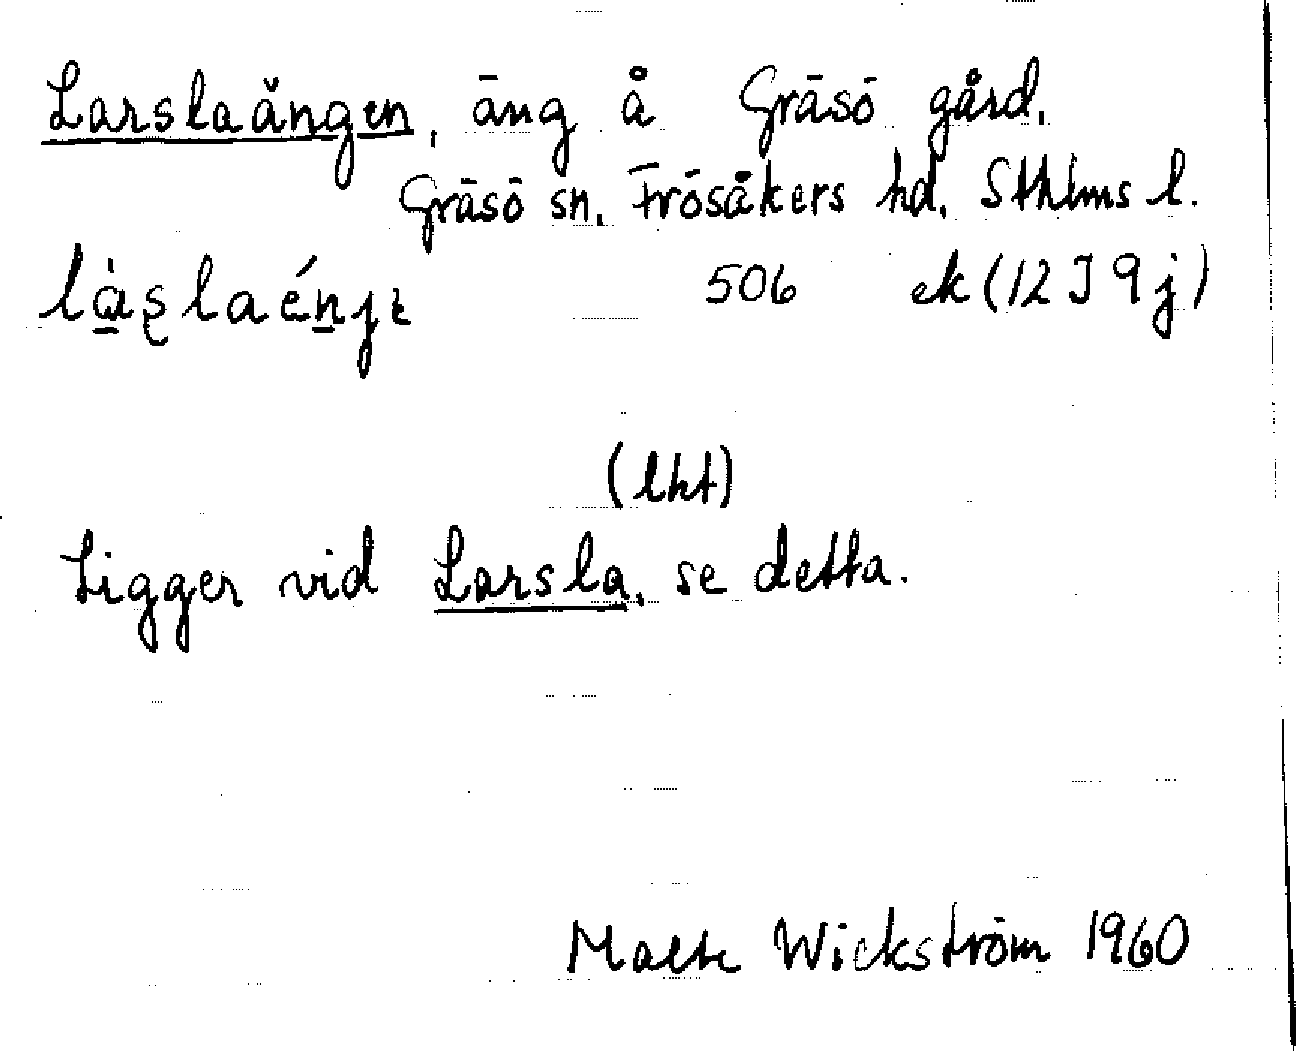 Larslaängen, äng å Gräsö gård.
Gräsö sn. Frösåkers hd. Sthlms l.
là̱ʂlaéṉjɛ 506 ek (12 I 9 j)
(lht)
Ligger vid Larsla, se detta.
Malte Wickström 1960